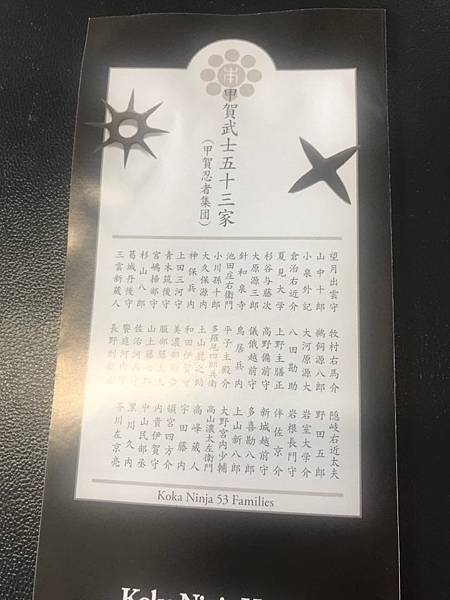 本
甲賀武士五十三家
（甲賀忍者集団）
望月出雲守
山中十郎
小泉外記
倉治右近介
夏見大学
杉谷与藤次
大原源三郎
針和泉寺
池田庄右衛門
小川孫十郎
大久保源内
神保兵内
上田三河守
青木筑後守
宮嶋掃部守
杉山八郎
葛城丹後守
三雲新蔵人
牧村右馬介
鵜飼源八郎
大河原源太
八田勘助
上野主膳正
高野備前守
儀俄越前守
鳥居兵内
平子主殿介
多羅尾四郎兵衛
土山鹿之助
和田伊賀守
美濃部
服部藤太夫
山上藤
佐治河
饗庭河内守
長野刑部
隠岐右近太夫
野田五郎
岩室大学介
岩根長門守
伴佐京介
新城越前守
多喜勘八郎
上山新八郎
大野宮内少輔
高山濃太左衛門
高峰蔵人
宇田藤内
頓宮四方介
内貴伊賀守
中山民部丞
黒川久内
芥川左京亮
Koka Ninja 53 Families
Koka Ninja